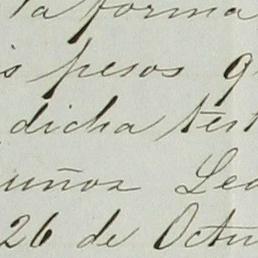 la forma
s pesos q
dicha test
uñoz Lea
26 de Octu